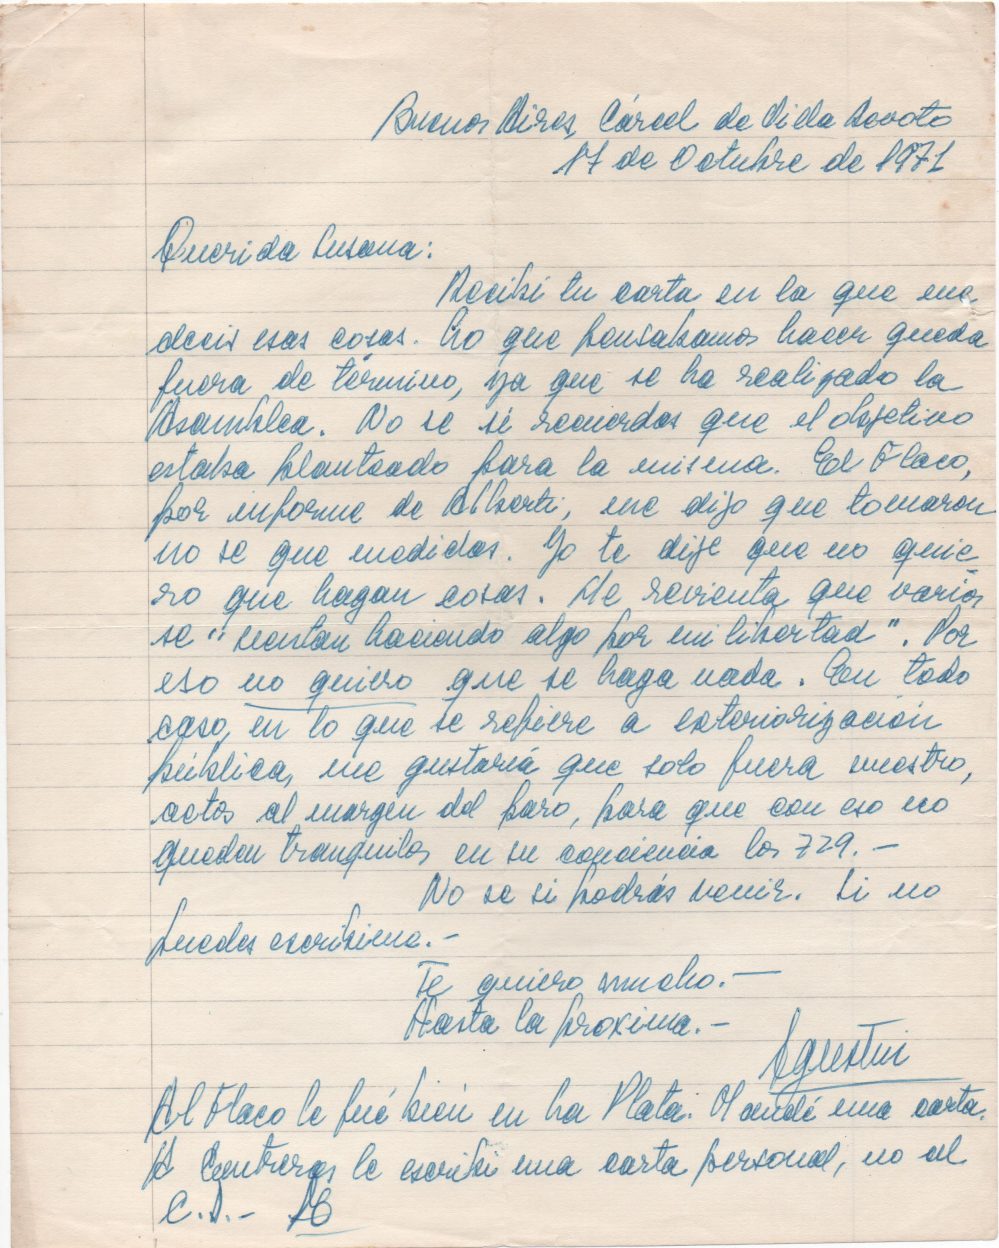 Buenos Aires, Cárcel de Villa Devoto
17 de Octubre de 1971
Querida Susana:
Recibi tu carta en la que me
decis esas cosas. Lo que pensabamos hacer queda
fuera de término, ya que se ha realizado la
Asamblea. No se si recuerdas que el objetivo
estaba planteado para la misma. El Flaco,
por informe de Alberti, me dijo que tomaron
no se que medidas. Yo te dije que no quie-
ro que hagan cosas. Me revienta que varios
se "sientan haciendo algo por mi libertad". Por
eso no quiero que se haga nada. En todo
caso, en lo que se refiere a exteriorización
pública, me gustaría que solo fuera nuestro,
actos al margen del paro, para que con eso no
queden tranquilos en su conciencia los 729.-
No se si podrás venir. Si no
puedes escribime.-
Te quiero mucho.-
Hasta la proxima.-
Agustin
Al Flaco le fué bién en La Plata. Mandé una carta.
A Contreras le escribi una carta personal, no al
C.D.-